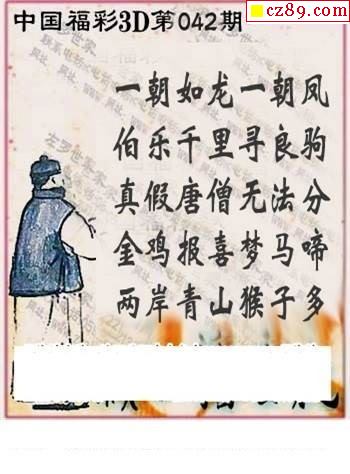 cz89.com
中国福彩3D第042期
一朝如龙一朝凤
伯乐千里寻良驹
真假唐僧无法分
金鸡报喜梦马啼
两岸青山猴子多